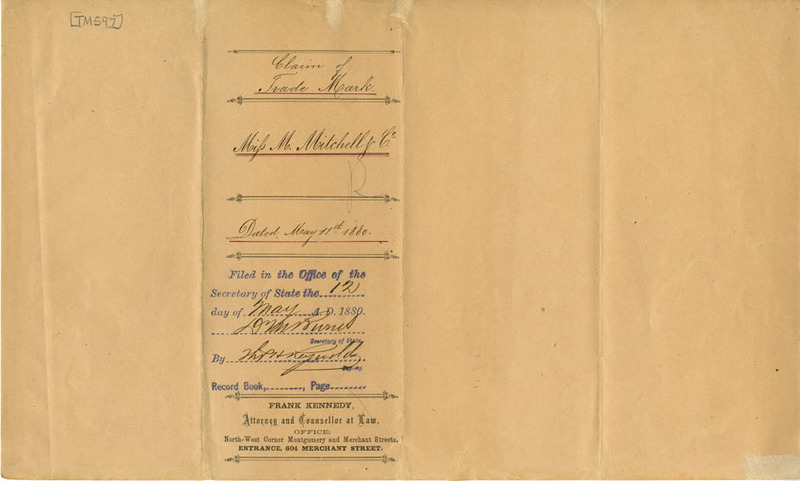 [TM597]
Claim of
Trade Mark.
Miss M. Mitchell & Co
R
Dated, May 11th 1880.
Filed in the Office of the
Secretary of State the 12
day of May A.D. 1880.
D M Burns
Secretary of State
By Thos H Reynolds
Deputy
Record Book,........, Page........
FRANK KENNEDY,
Attorney and Counsellor at Law,
OFFICE:
North-West Corner Montgomery and Merchant Streets,
ENTRANCE, 604 MERCHANT STREET.